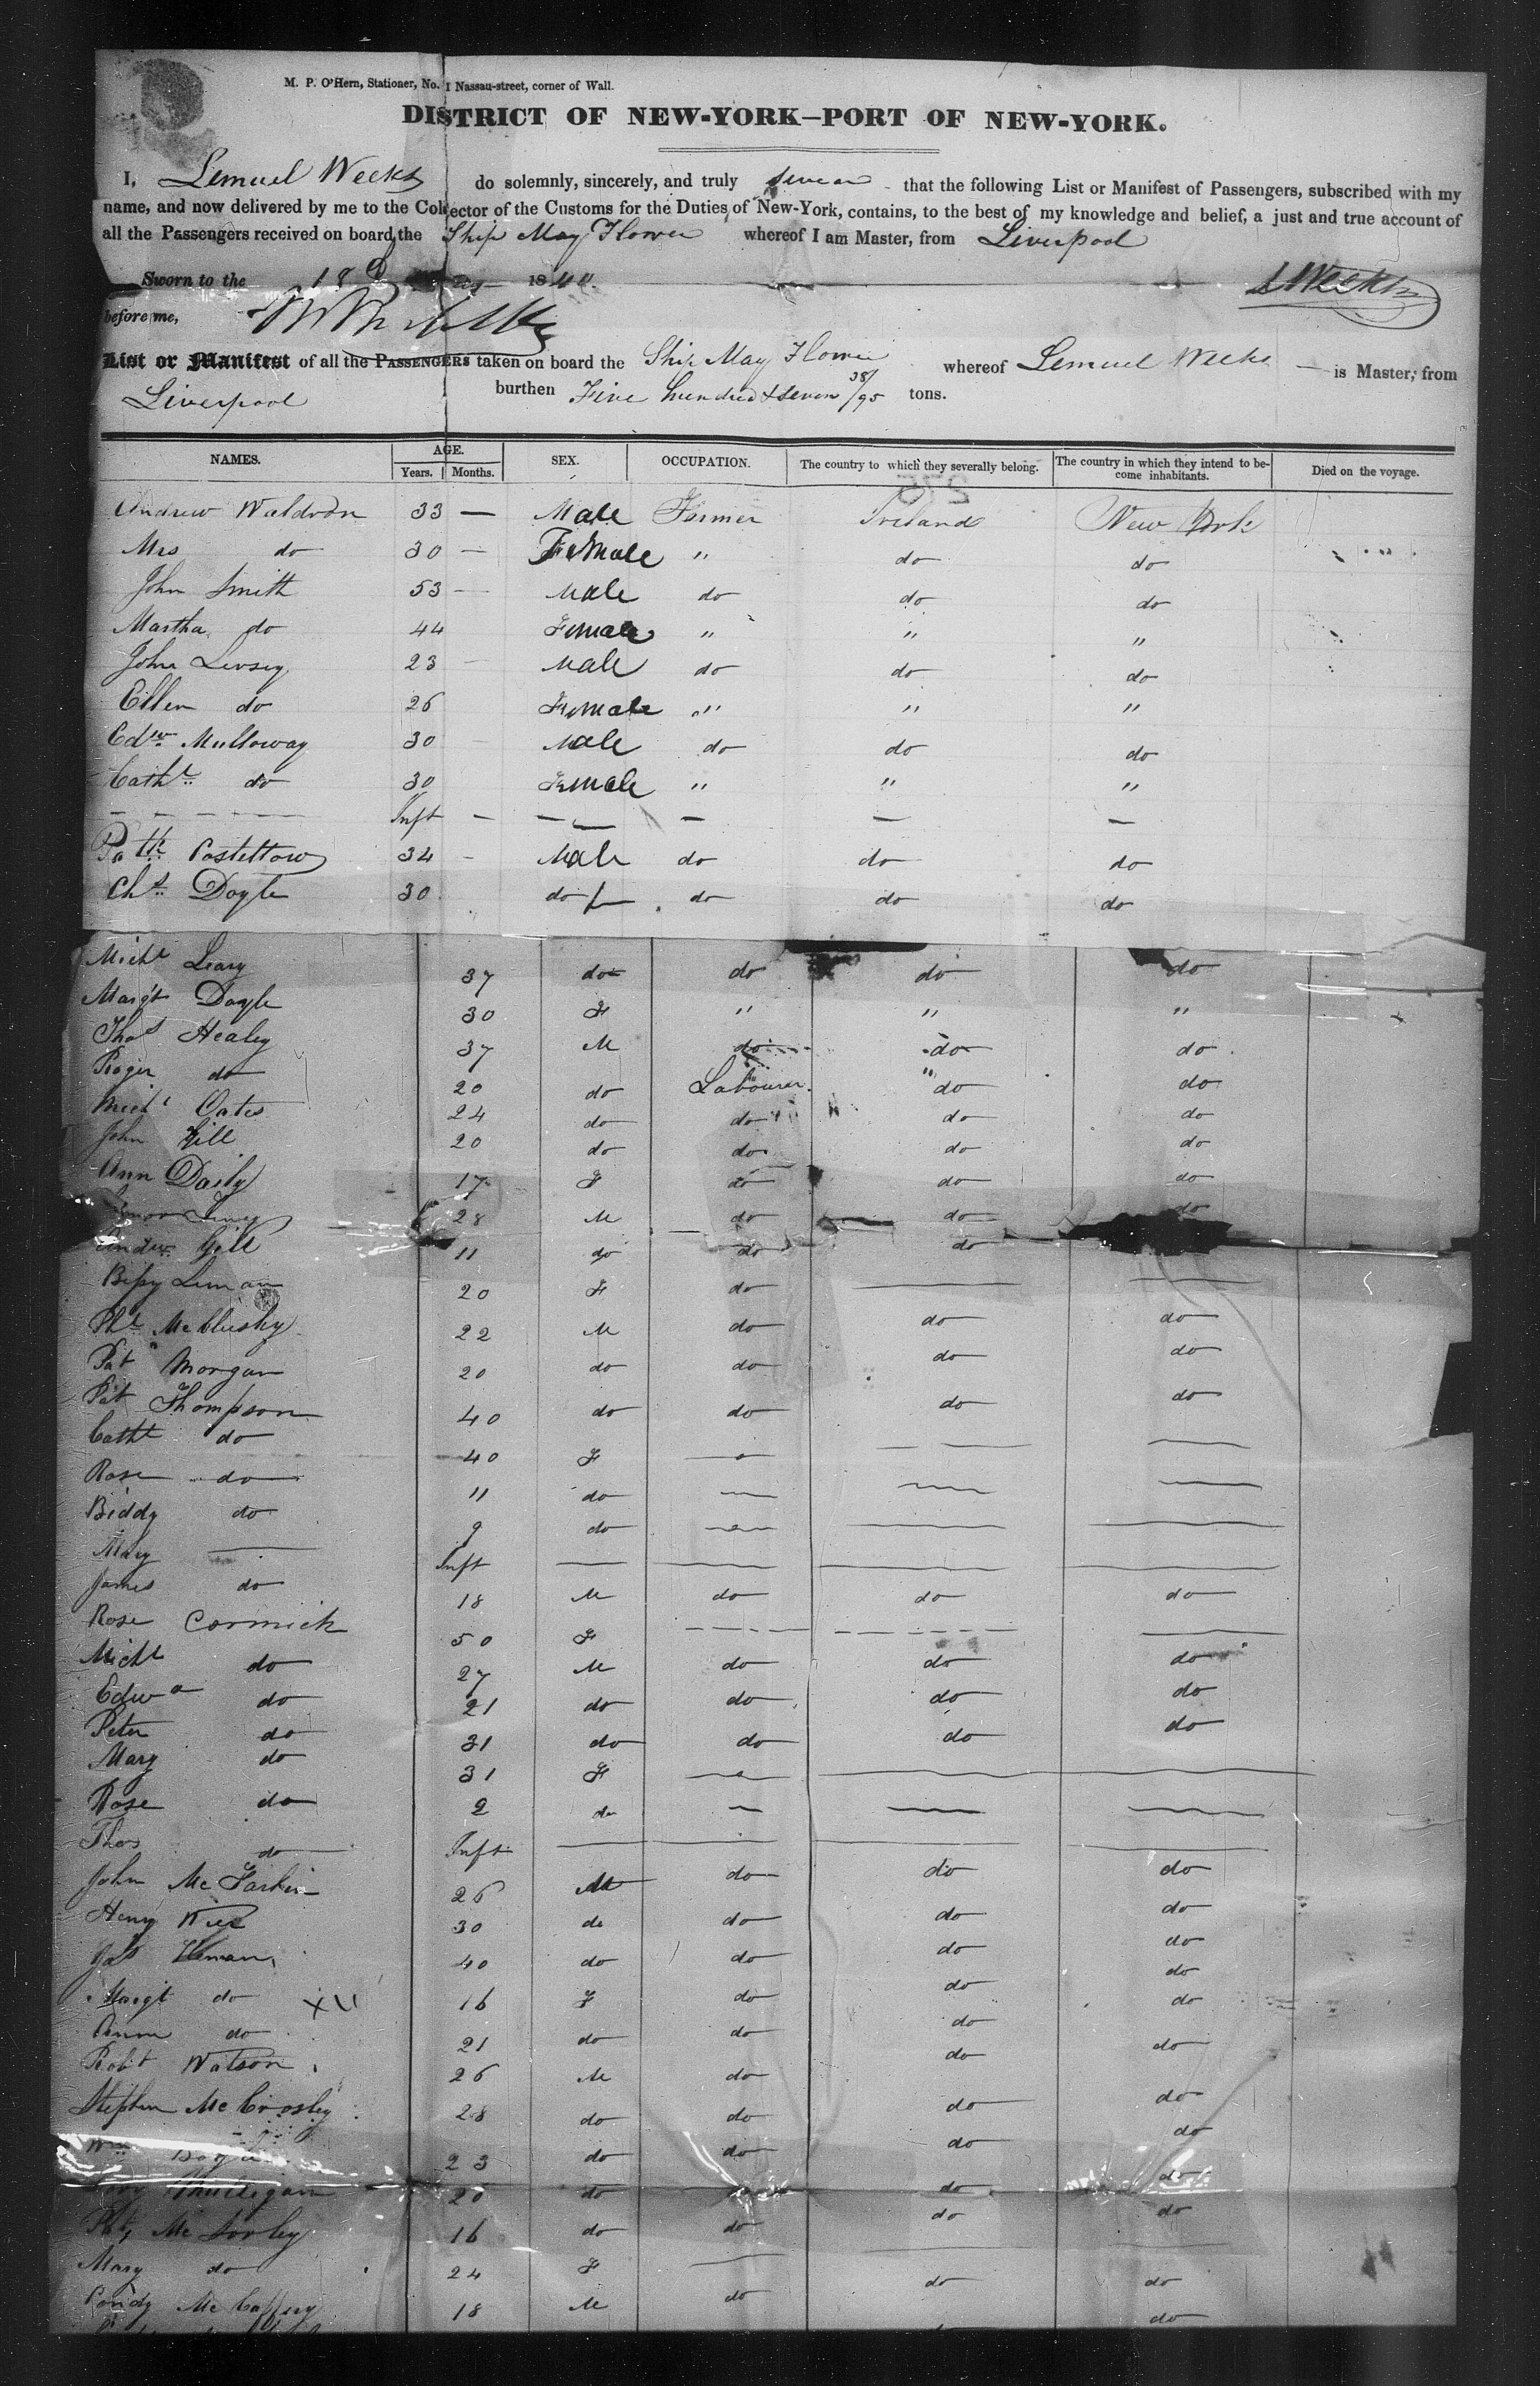 M. P. O'Hern, Stationer, No. 1 Nassau-street, corner of Wall.
DISTRICT OF NEW-YORK—PORT OF NEW-YORK.
I, Lemuel Weeks do solemnly, sincerely, and truly swear that the following List or Manifest of Passengers, subscribed with my
name, and now delivered by me to the Collector of the Customs for the Duties of New-York, contains, to the best of my knowledge and belief, a just and true account of
all the Passengers received on board the Ship May Flower whereof I am Master, from Liverpool
Sworn to the 18 1840. L Weeks
before me,
List or Manifest of all the PASSENGERS taken on board the Ship May Flower whereof Lemuel Weeks is Master, from
Liverpool burthen Five hundred & seven 38/95 tons.
NAMES. AGE. SEX. OCCUPATION. The country to which they severally belong. The country in which they intend to become inhabitants. Died on the voyage.
Years. Months.
Andrew Waldron 33 — Male Farmer Ireland New York
Mrs do 30 — Female " do do
John Smith 53 — Male do do do
Martha do 44 Female " " "
John Livsey 23 — Male do do do
Ellen do 26 Female " " "
Edw Mulloway 30 — Male do do do
Cathe do 30 Female " " "
— — — — Inft — — — — —
Patk Costellow 34 — Male do do do
Chs Doyle 30 do do do do
Michl Leary 37 do do do do
Margt Doyle 30 F " " "
Thos Healey 37 M do do do
Roger do 20 do Labourer do do
Michl Oates 24 do do do do
John Gill 20 do do do do
Ann Daily 17 F do do do
28 M do do do
Andw Gill 11 do do do
Bessy Lunan 20 F do — —
Phl McClusky 22 M do do do
Pat Morgan 20 do do do do
Pat Thompson 40 do do do do
Cathe do 40 F — — —
Rose do 11 do — — —
Biddy do 9 do — — —
Mary — Inft — — — —
James do 18 M do do do
Rose Cormick 50 F — — —
Michl do 27 M do do do
Edwd do 21 do do do do
Peter do 31 do do do do
Mary do 31 F — — —
Rose do 2 do — — —
Thos do Inft — — — —
John McFarlin 26 M do do do
Heny Wier 30 do do do do
Jas 40 do do do do
Margt do 16 F do do do
Anne do 21 do do do do
Robt Watson 26 M do do do
Stephen McCrosley 28 do do do do
Wm 23 do do do do
Mulligan 20 do do do
Pat McSorley 16 do do do do
Mary do 24 F — — —
Condy McCaffery 18 M do do do
do